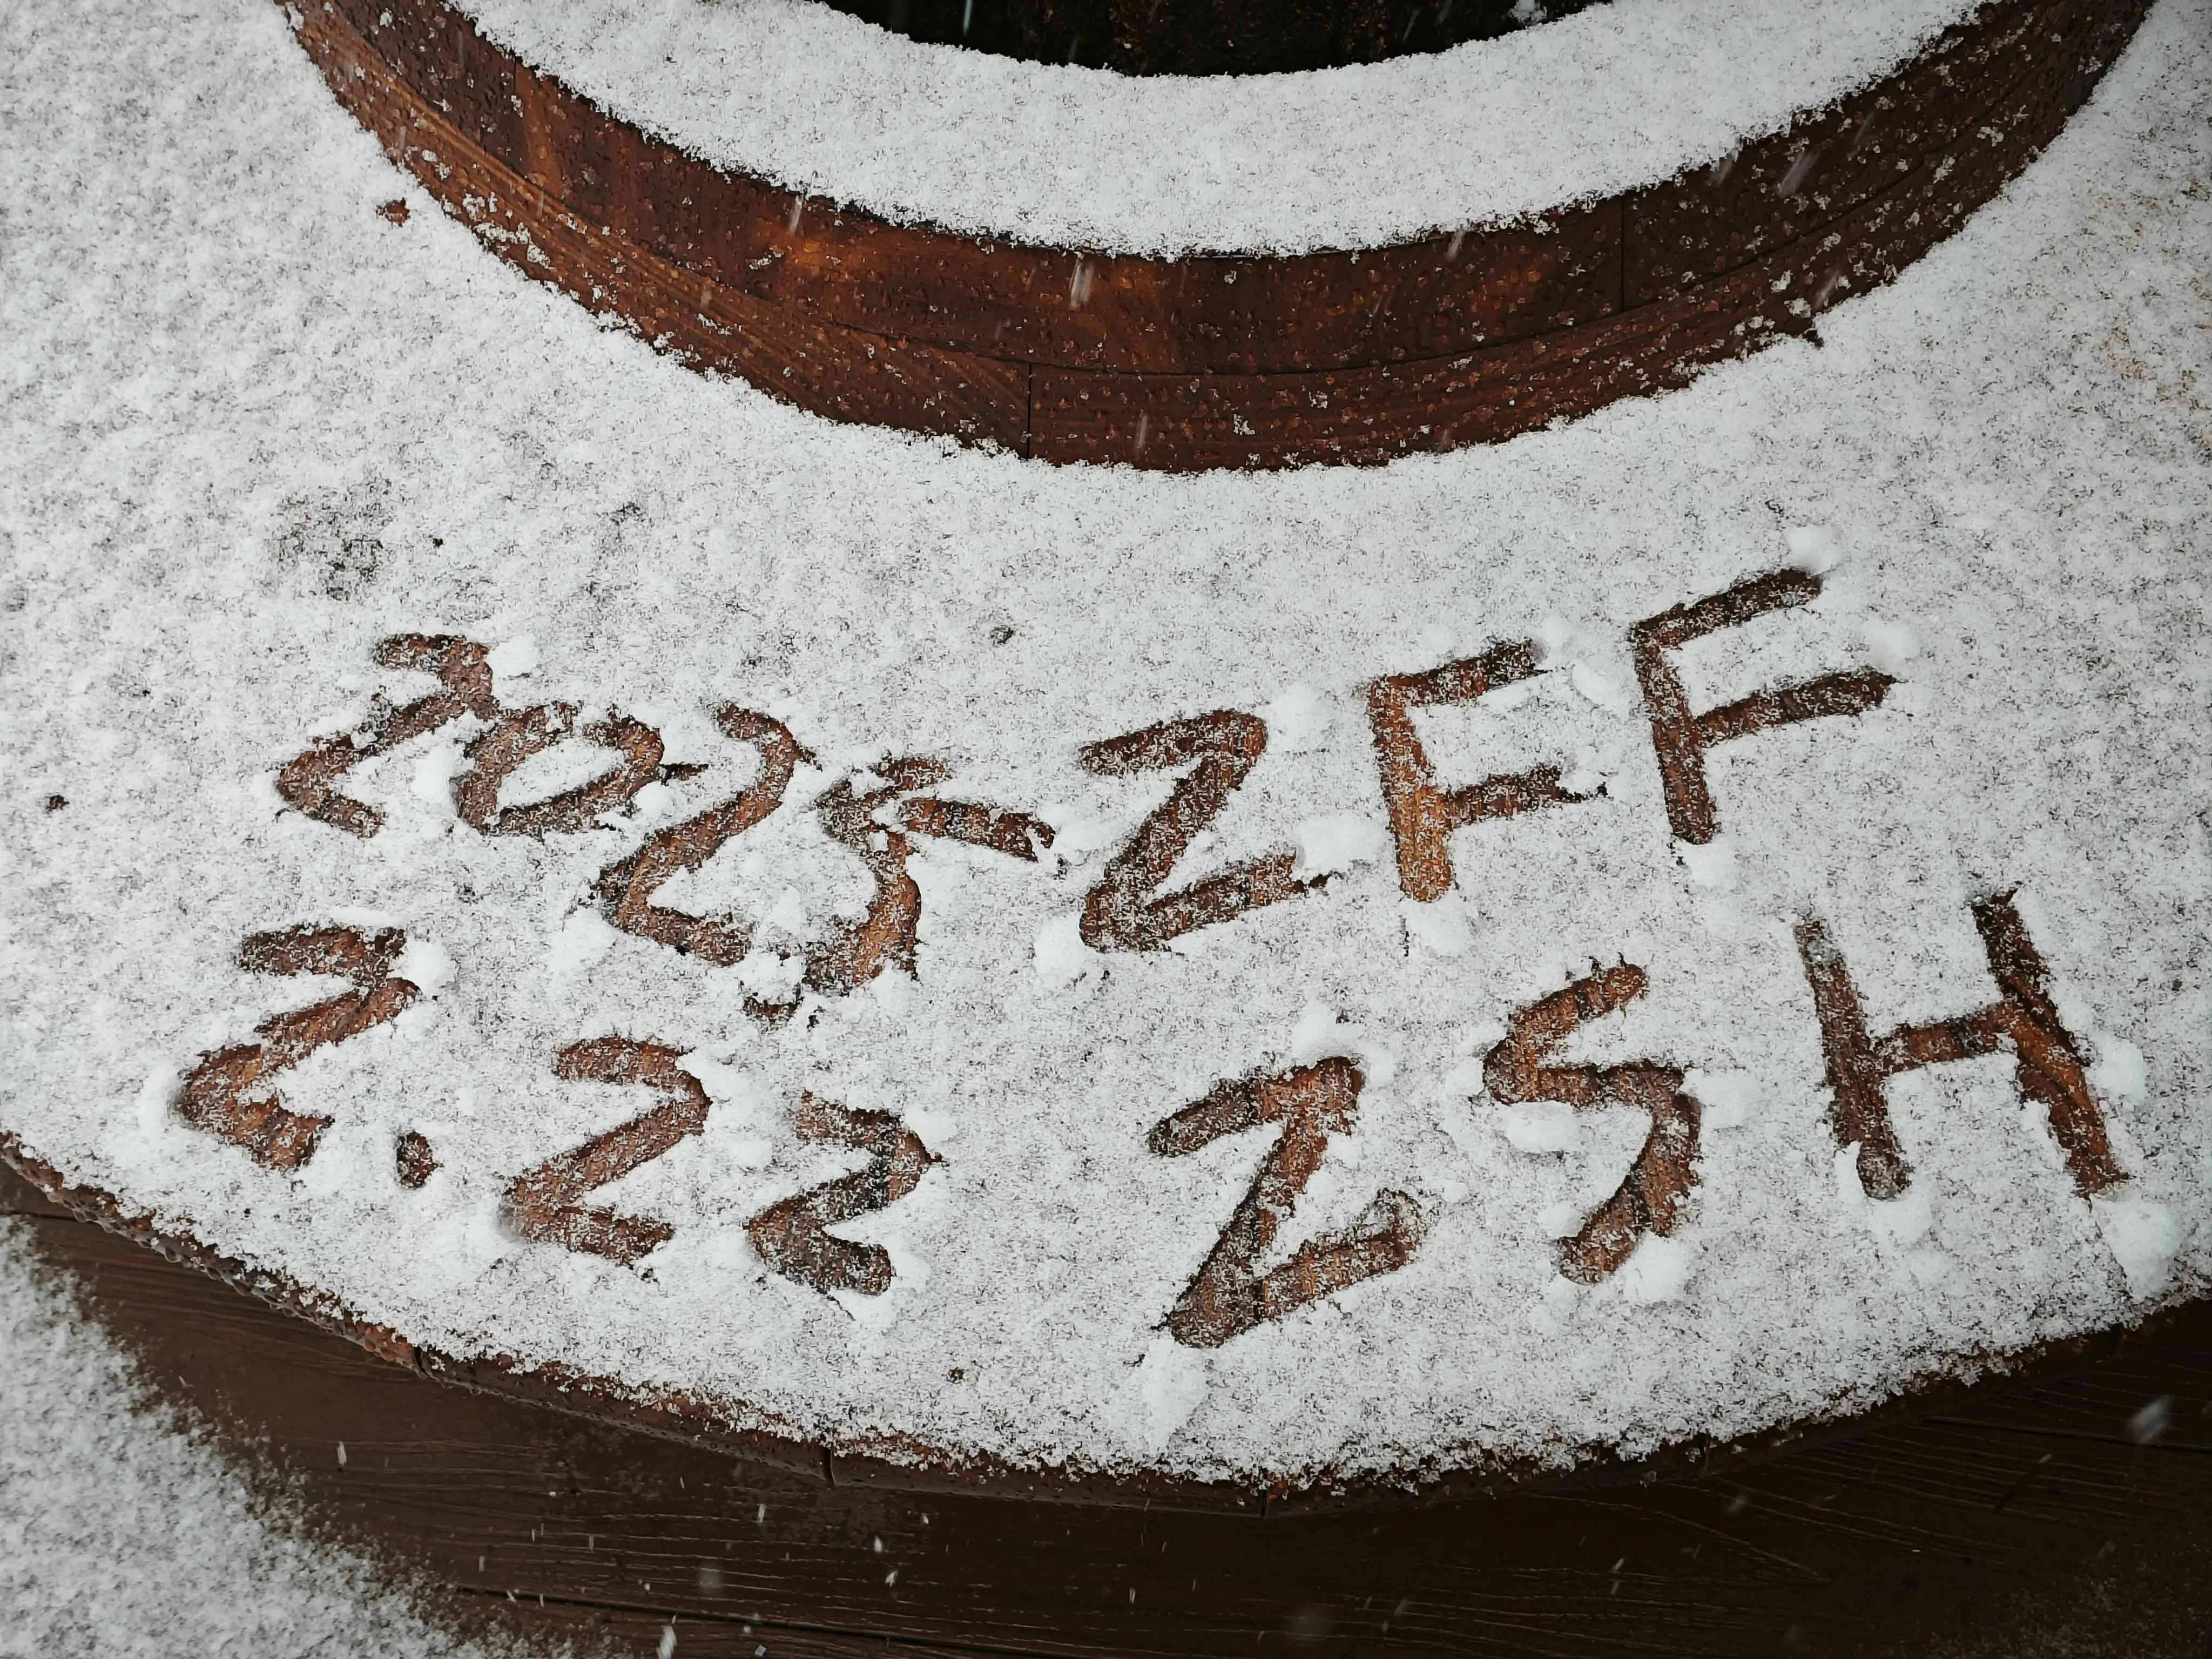 2025 ZFF
2.22 ZSH